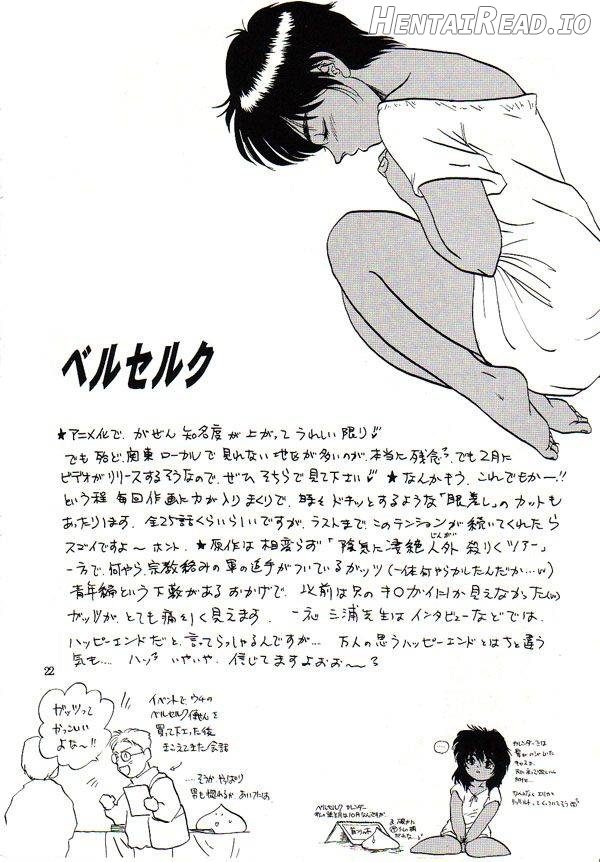 HENTAIREAD.IO
ベルセルク
★アニメ化で、がぜん 知名度が上がって うれしい限り♡
でも 殆ど、関東ローカルで 見れない 地区が多いのが、本当に残念。でも2月に
ビデオがリリースするそうなので、ぜひ そちらで 見て下さい♡ ★なんかもう、これでもかー!!
という程 毎回 作画に力が入りまくりで、時々 ドキッとするような「眼差し」のカットも
あったります。全25話くらいらしいですが、ラストまで、このテンションが続いてくれたら
スゴイですよ〜 ホント。★原作は 相変らず「陰気に凄絶人外 殺りくツアー」
じんがい
一方で、何やら 宗教絡みの軍の追手がついているガッツ(一体何やらかしたんだか…
青年編という下敷があるおかげで、以前は只のキ○ガイにか見えなかった
ガッツが、とても痛々しく見えます。 一応 三浦先生は インタビューなどでは、
ハッピーエンドだと、言ってらっしゃるんですが… 万人の思うハッピーエンドとはちと違う
気も… ハッ いやいや、信じてますよおぉ〜
22
ガッツって
かっこいい
よな〜!!
イベントで、ウチの
ベルセルク便せん を
買って下さった後
きこえてきた会話
……そうか、やっぱり
男も惚れるか、あいつには
ベルセルク カレンダー